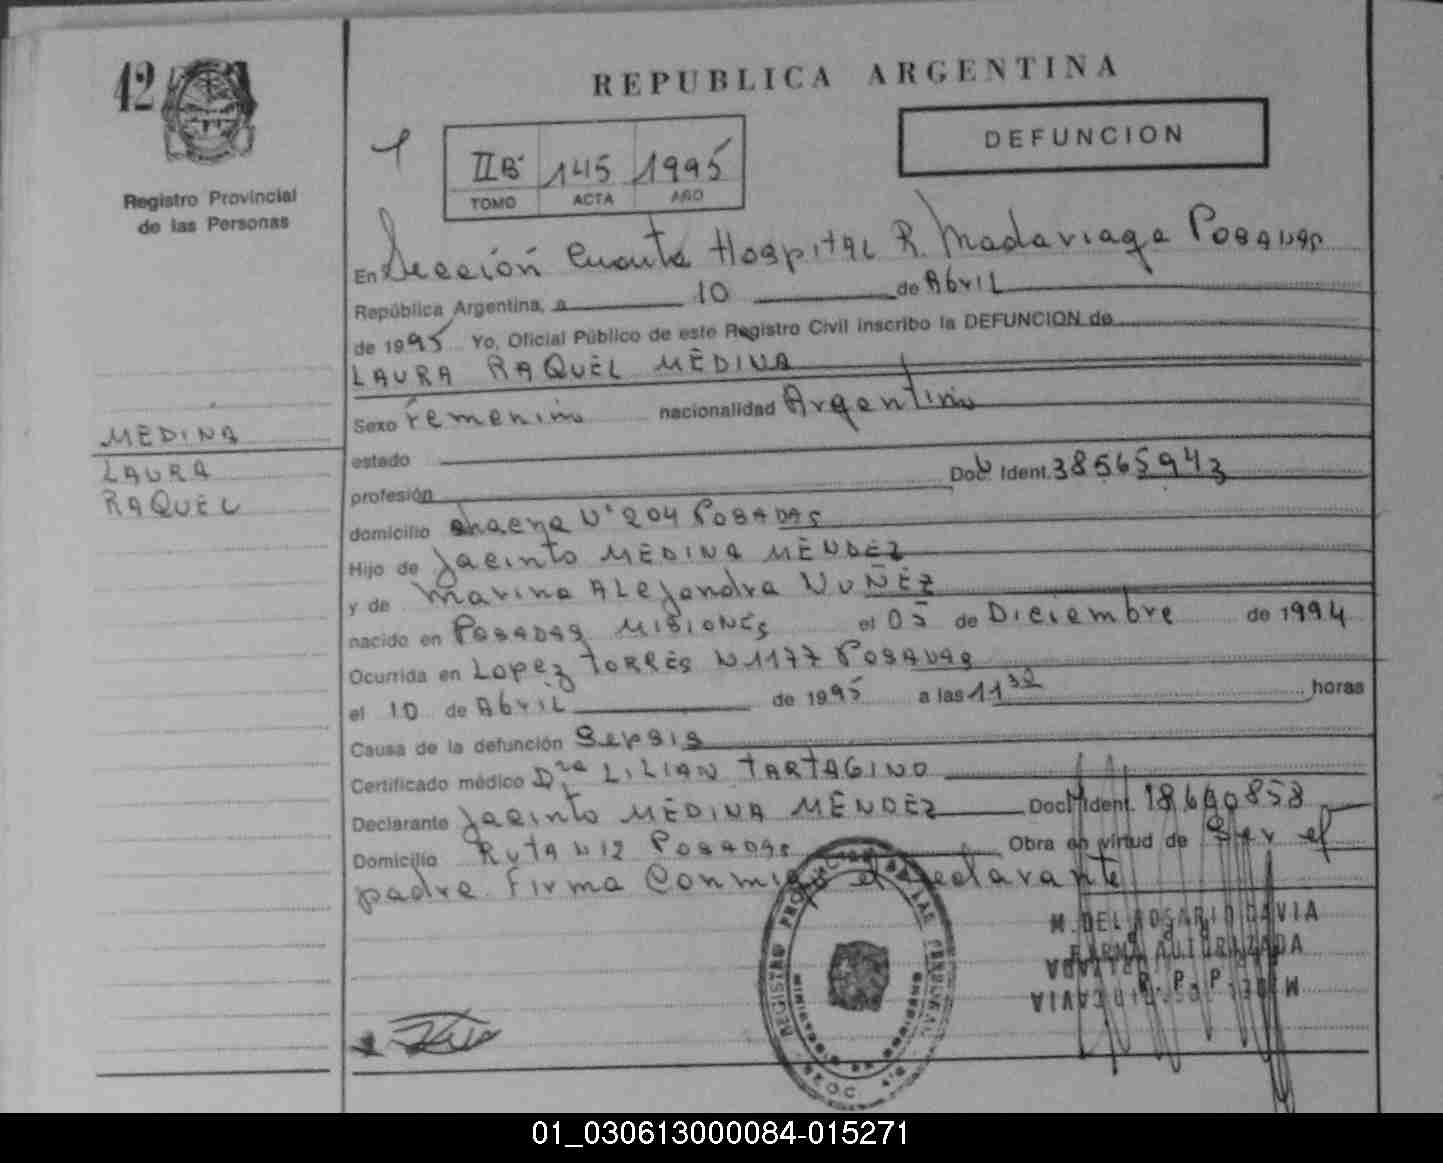 42
REPUBLICA ARGENTINA
DEFUNCION
IIBº 145 1995
TOMO ACTA AÑO
Registro Provincial
de las Personas
En Sección Cuarta Hospital R. Madariaga Posadas
República Argentina, a 10 de Abril
de 1995 Yo, Oficial Público de este Registro Civil inscribo la DEFUNCION de
LAURA RAQUEL MEDINA
Sexo Femenino nacionalidad Argentina
MEDINA
LAURA
RAQUEL
estado
profesión Doc. Ident. 38565943
domicilio Nº 204 POSADAS
Hijo de Jacinto MEDINA MENDEZ
y de Marina Alejandra NUÑEZ
nacido en POSADAS MISIONES el 05 de Diciembre de 1994
Ocurrida en Lopez TORRES N 1177 POSADAS
el 10 de Abril de 1995 a las 11 30 horas
Causa de la defunción Sepsis
Certificado médico Dra LILIAN TARTAGINO
Declarante Jacinto MEDINA MENDEZ Doc. Ident. 18690853
Domicilio RUTA N 12 POSADAS Obra en virtud de Ser el
padre. Firma Conmigo el declarante
M. DEL ROSARIO GAVIA
FIRMA AUTORIZADA
R. P. P.
REGISTRO PROVINCIAL DE LAS PERSONAS
MINISTERIO DE GOBIERNO
01_030613000084-015271